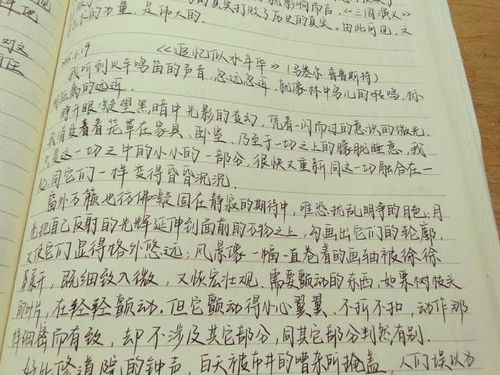 的真实打败了历史的真实，由此可见，文
学的力量，是伟大的。
1.19 《追忆似水年华》（马塞尔·普鲁斯特）
我听到火车鸣笛的声音，忽远忽近，就像林中鸟儿的啭鸣，标
距离的远近。
睁开眼凝望黑暗中光影的变幻，凭着一闪而过的意识的微光，
我消受着笼罩在家具、卧室、乃至于一切之上的朦胧睡意，我
只是这一切之中的小小的一部分，很快又重新同这一切融合在一
起，同它们一样变得昏昏沉沉。
窗外万籁也彷佛凝固在静寂的期待中，唯恐扰乱明净的月色；月
亮把自己反射的光辉延伸到面前的万物之上，勾画出它们的轮廓，
又使它们显得格外悠远；风景像一幅一直卷着的画轴被徐徐
展开，既细致入微，又恢宏壮观。需要颤动的东西，如果树枝头
的叶片，在轻轻颤动。但它颤动得小心翼翼、不折不扣，动作那
样细密而有致，却不涉及其它部分，同其它部分判然有别。
好比修道院的钟声，白天被市井的嘈杂所掩盖，人们误以为